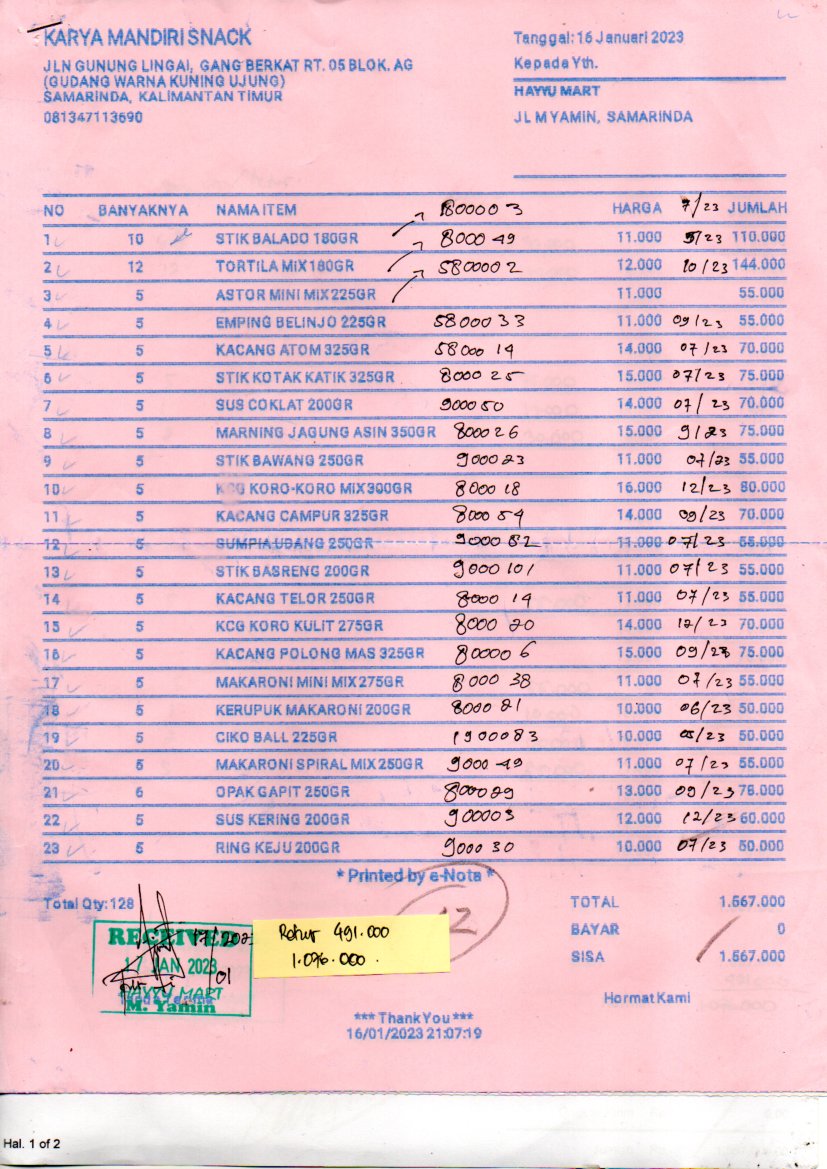 KARYA MANDIRI SNACK
Tanggal: 16 Januari 2023
JLN GUNUNG LINGAI, GANG BERKAT RT. 05 BLOK. AG
Kepada Yth.
(GUDANG WARNA KUNING UJUNG)
HAYYU MART
SAMARINDA, KALIMANTAN TIMUR
081347113690
JL M YAMIN, SAMARINDA
NO BANYAKNYA NAMA ITEM 80000 3 HARGA 7/23 JUMLAH
1 10 STIK BALADO 180GR 8000 49 11.000 5/23 110.000
2 12 TORTILA MIX 180GR 580000 2 12.000 10/23 144.000
3 5 ASTOR MINI MIX 225GR 11.000 55.000
4 5 EMPING BELINJO 225GR 58000 33 11.000 09/23 55.000
5 5 KACANG ATOM 325GR 58000 14 14.000 07/23 70.000
6 5 STIK KOTAK KATIK 325GR 8000 25 15.000 07/23 75.000
7 5 SUS COKLAT 200GR 9000 50 14.000 07/23 70.000
8 5 MARNING JAGUNG ASIN 350GR 8000 26 15.000 9/23 75.000
9 5 STIK BAWANG 250GR 9000 23 11.000 07/23 55.000
10 5 KCG KORO-KORO MIX 300GR 8000 18 16.000 12/23 80.000
11 5 KACANG CAMPUR 325GR 8000 54 14.000 09/23 70.000
12 5 SUMPIA UDANG 250GR 9000 82 11.000 07/23 55.000
13 5 STIK BASRENG 200GR 9000 101 11.000 07/23 55.000
14 5 KACANG TELOR 250GR 8000 14 11.000 07/23 55.000
15 5 KCG KORO KULIT 275GR 8000 20 14.000 12/23 70.000
16 5 KACANG POLONG MAS 325GR 80000 6 15.000 09/23 75.000
17 5 MAKARONI MINI MIX 275GR 8000 38 11.000 07/23 55.000
18 5 KERUPUK MAKARONI 200GR 8000 21 10.000 06/23 50.000
19 5 CIKO BALL 225GR 1900083 10.000 05/23 50.000
20 5 MAKARONI SPIRAL MIX 250GR 9000 49 11.000 07/23 55.000
21 6 OPAK GAPIT 250GR 800029 13.000 09/23 78.000
22 5 SUS KERING 200GR 900003 12.000 12/23 60.000
23 5 RING KEJU 200GR 9000 30 10.000 07/23 50.000
* Printed by e-Nota *
Total Qty: 128
TOTAL 1.567.000
12
BAYAR 0
RECEIVED
Retur 491.000
17 JAN 2023
1.076.000.
SISA 1.567.000
HAYYU MART
M. Yamin
Hormat Kami
*** Thank You ***
16/01/2023 21:07:19
Hal. 1 of 2